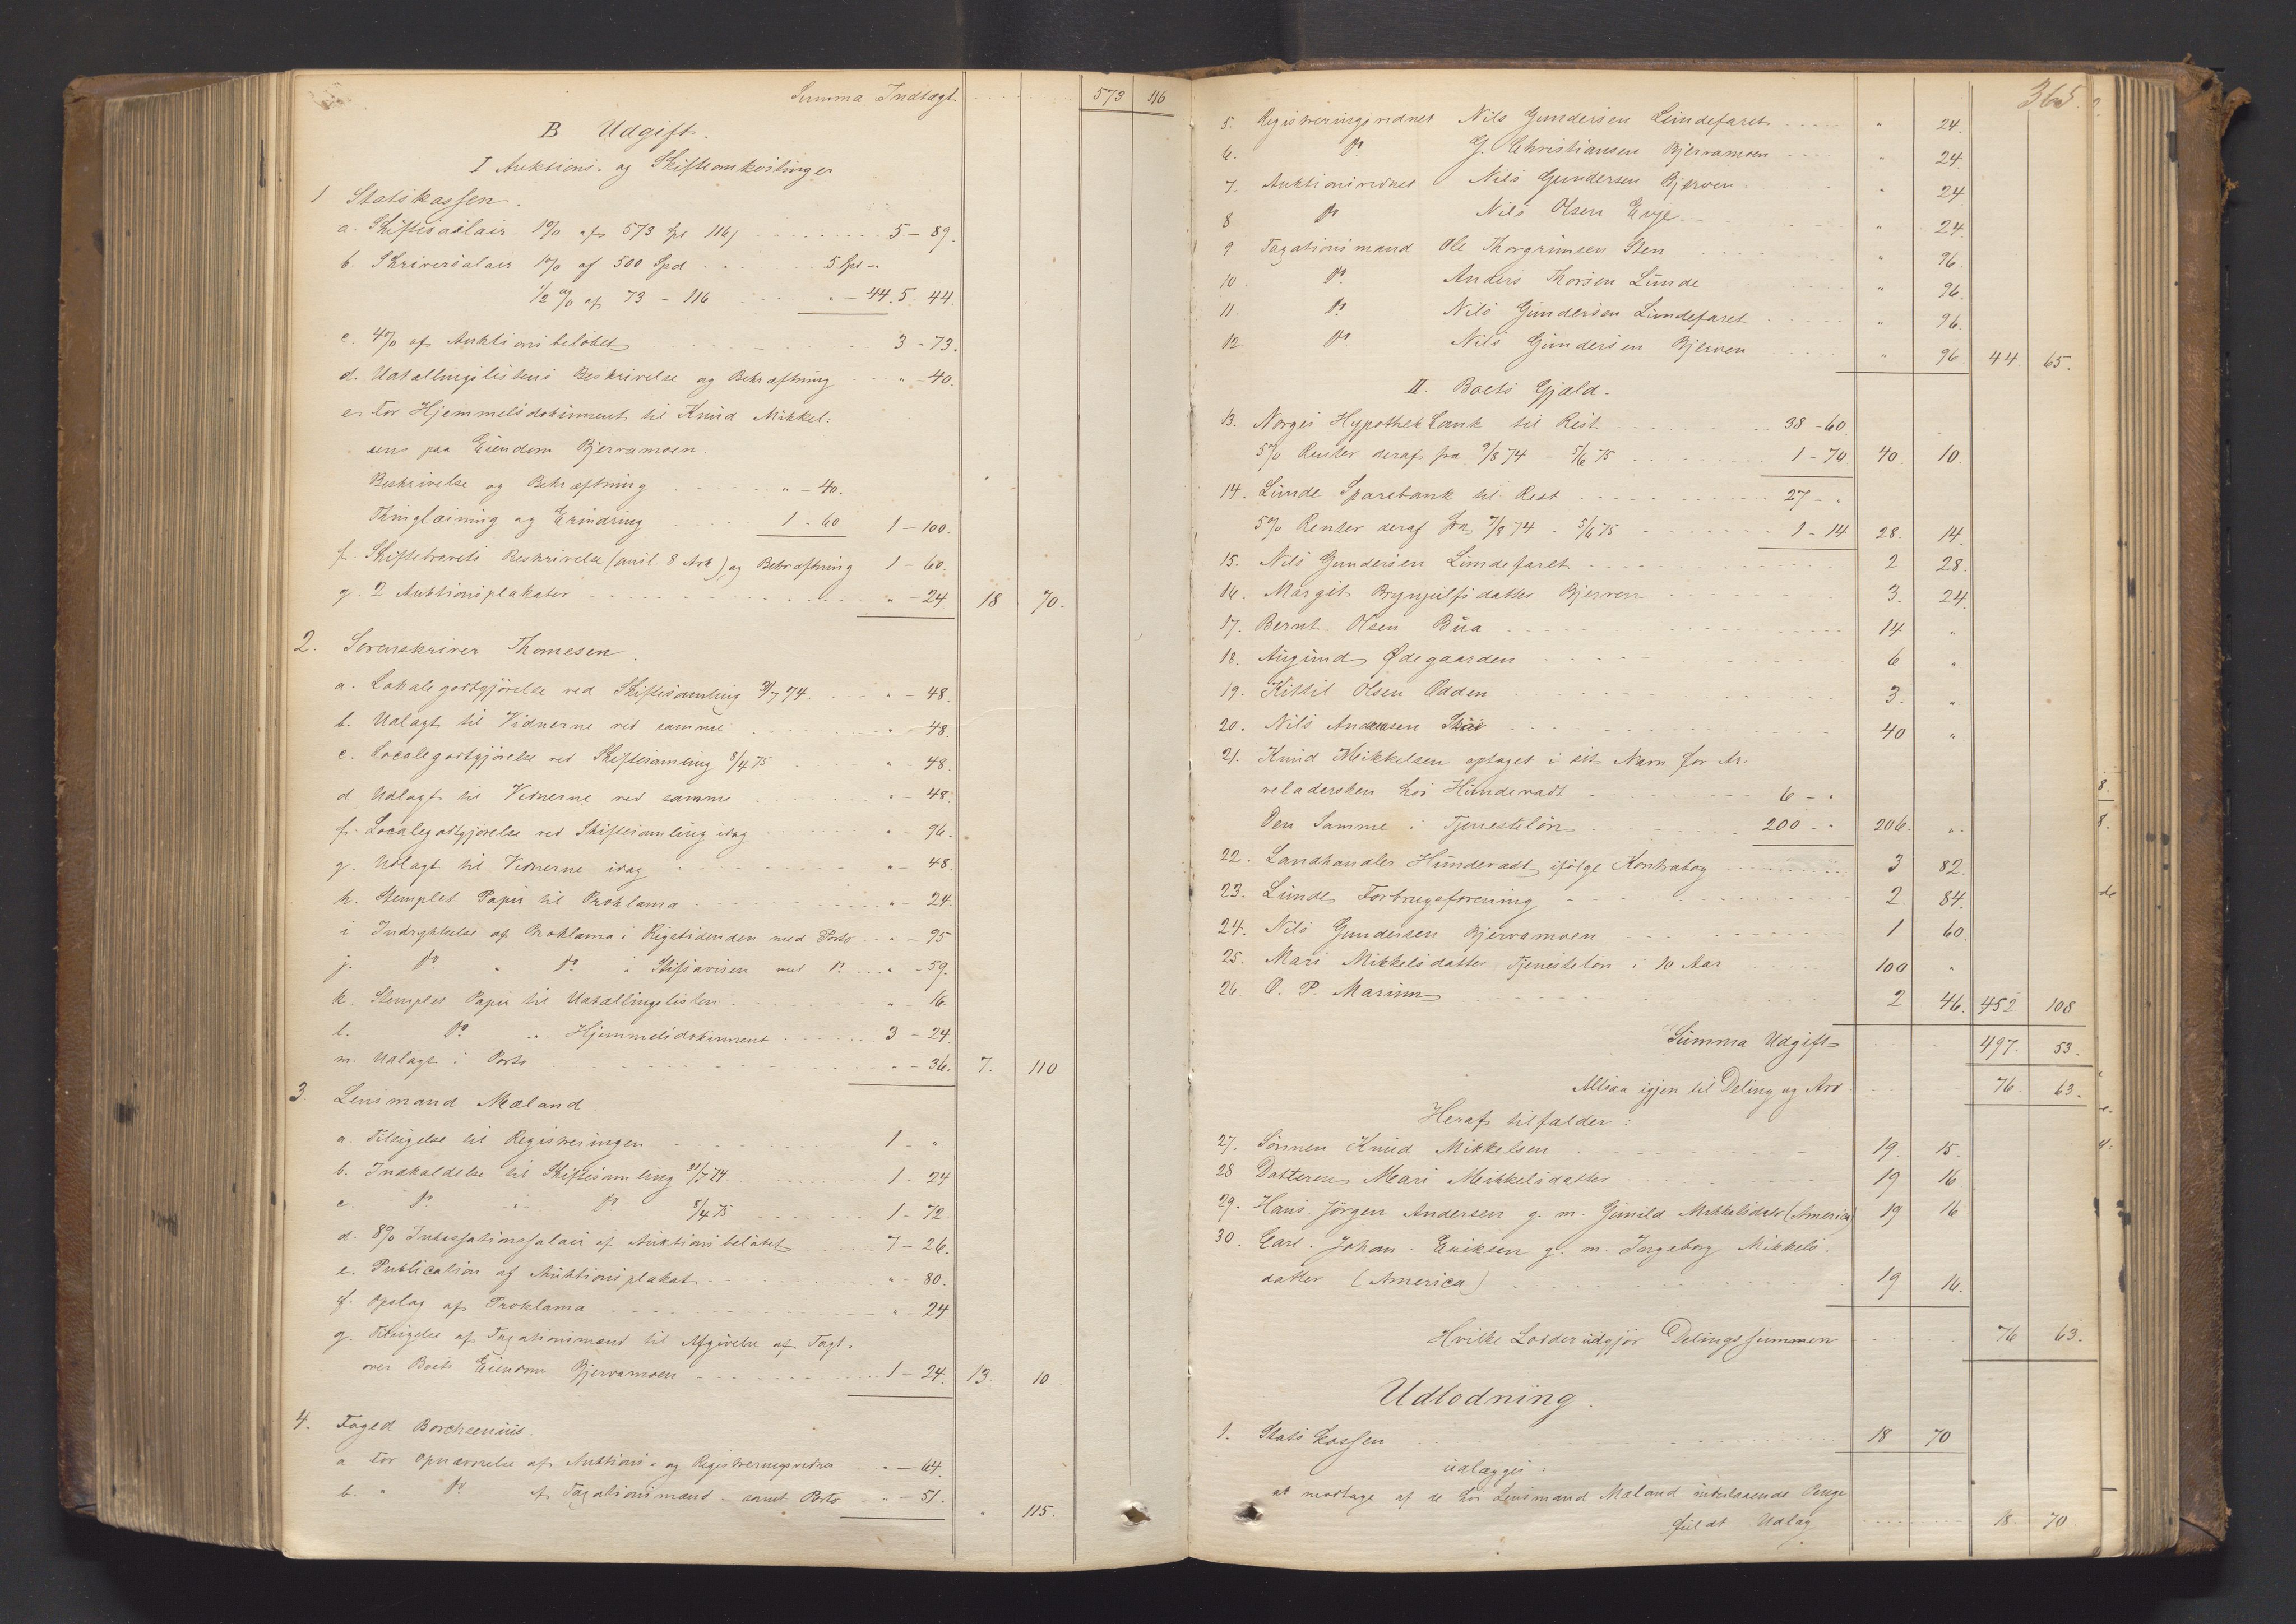 Summa Indtægt 573 116
B Udgift.
I Auktions- og Skifteomkostninger
1 Statskassen.
a. Skiftesalair 1% af 573 Spd 116 5 - 89.
b. Skriversalair 1% af 500 Spd 5 Spd -
1/2 % af 73 - 116 " - 44. 5. 44.
c. 4% af Auktionsbeløbet 3 - 73.
d. Udtællingslistens Beskrivelse og Bekræftning " - 40.
e. For Hjemmelsdokument til Knud Mikkel-
sen paa Eiendom Bjervamoen
Beskrivelse og Bekræftning " - 40.
Thinglæsning og Erindring 1 - 60 1 - 100.
f. Skiftebrevets Beskrivelse (ansl. 8 Ark) og Bekræftning 1 - 60.
g. 2 Auktionsplakater " - 24 18 70.
2. Sorenskriver Thomesen.
a. Lokalegodtgjörelse ved Skiftesamling 31/7 74. " - 48.
b. Udlagt til Vidnerne ved samme " - 48.
c. Localegodtgjörelse ved Skiftesamling 8/4 75 " - 48.
d Udlagt til Vidnerne ved samme " - 48.
f. Localegodtgjörelse ved Skiftesamling idag " - 96.
g. Udlagt til Vidnerne idag " - 48.
h. Stemplet Papir til Proklama " - 24.
i Indrykkelse af Proklama i Rigstidenden med Porto " - 95
j. Do " Do i Stiftsavisen med Do " - 59.
k. Stemplet Papir til Udtællingslisten " - 16.
l. Do " Hjemmelsdokument 3 - 24.
m. Udlagt i Porto " - 36. 7. 110
3. Lensmand Mæland.
a. Tilsigelse til Registreringen 1 - "
b. Indkaldelse til Skiftesamling 31/7 74 1 - 24
c. Do " Do 8/4 75 1 - 72.
d. 8% Inkassationssalair af Auktionsbeløbet 7 - 26.
e. Publication af Auktionsplakat " - 80.
f. Opslag af Proklama " - 24
g. Tilsigelse af Taxationsmænd til Afgivelse af Taxt
over Boets Eiendom Bjervamoen 1 - 24. 13. 10.
4. Foged Borchsenius.
a For Opnævnelse af Auktions- og Registreringsvidner " - 64.
b. " Do af Taxationsmænd samt Porto " - 51. " 115.
365.
5. Registreringsvidnet Nils Gundersen Lundefaret " 24.
6. Do G. Christiansen Bjervamoen " 24.
7. Auktionsvidnet Nils Gundersen Bjerven " 24.
8 Do Nils Olsen Evje " 24
9. Taxationsmand Ole Thorgrimsen Sten " 96.
10. Do Anders Thorsen Lunde " 96.
11. Do Nils Gundersen Lundefaret " 96.
12. Do Nils Gundersen Bjerven " 96 44 65.
II. Boets Gjæld.
13. Norges Hypothekbank til Rest 38 - 60.
5% Renter deraf fra 9/8 74 - 5/6 75 1 - 70 40. 10.
14. Lunde Sparebank til Rest 27 - "
5% Renter deraf fra 9/8 74 - 5/6 75 1 - 14 28. 14.
15. Nils Gundersen Lundefaret 2 28.
16. Margit Brynjulfsdatter Bjerven 3. 24.
17. Bernt Olsen Bua 14 "
18. Augund Ødegaarden 6 "
19. Kittil Olsen Odden 3. "
20. Nils Andersen 40 "
21. Knud Mikkelsen optaget i sit Navn for Ar-
veladersken hos Hundevadt 6 - "
Den Samme i Tjenestelön 200 - " 206. "
22. Landhandler Hundevadt ifölge Kontrabog 3 82.
23. Lunde Forbrugsforening 2. 84.
24. Nils Gundersen Bjervamoen 1 60.
25. Mari Mikkelsdatter Tjenestelön i 10 Aar 100 "
26. O. P. Marum 2 46. 452 108
Summa Udgift 497. 53.
Altsaa igjen til Deling og Arv 76. 63.
Heraf tilfalder:
27. Sönnen Knud Mikkelsen 19. 15.
28 Datteren Mari Mikkelsdatter 19 16.
29. Hans Jörgen Andersen g. m. Gunild Mikkelsdatr (America) 19 16
30. Carl Johan Eriksen g. m. Ingeborg Mikkels-
datter (America) 19 16.
Hvilke Lodder udgjör Delingssummen 76 63.
Udlodning.
1. Statskassen 18 70
udlægges:
at modtage af de hos Lensmand Mæland indestaaende Penge
fuldt Udlæg 18. 70